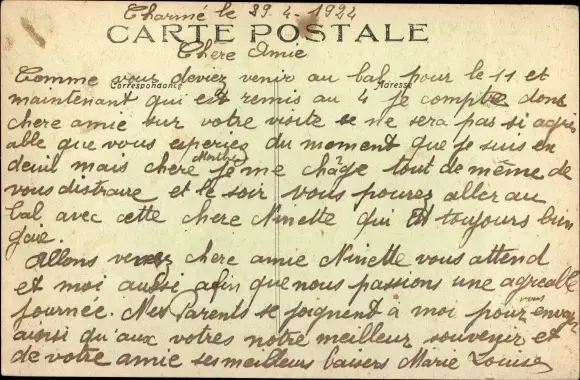 Charmé le 29.4-1924
CARTE POSTALE
Chere Amie
Correspondance
Adresse
Comme vous deviez venir au bal pour le 11 et
maintenant qui est remis au 4 je compte donc
chere amie sur votre visite se ne sera pas si agré
able que vous esperiez du moment que je suis en
deuil mais chere Marthe je me châge tout de même de
vous distraire et le soir vous pourez aller au
bal avec cette chere Ninette qui est toujours bien
gaie.
Allons venez chere amie Ninette vous attend
et moi aussi afin que nous passions une agreable
journée. Mes Parents se joignent à moi pour vous envoyer
ainsi qu'aux votres notre meilleur souvenir et
de votre amie ses meilleurs baisers Marie Louise